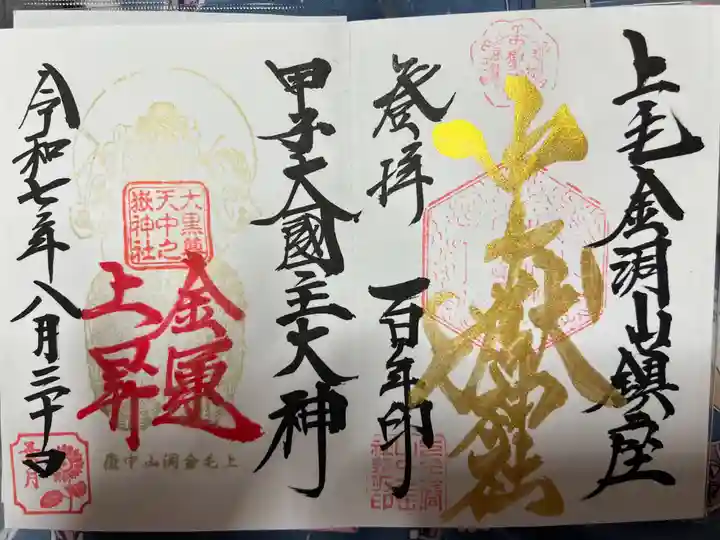 上毛金洞山鎮座
中之嶽神社
登拝 百年印
甲子大國主大神
大黒尊
天中之
嶽神社
金運
上昇
上毛金洞山中嶽
令和七年八月三十日